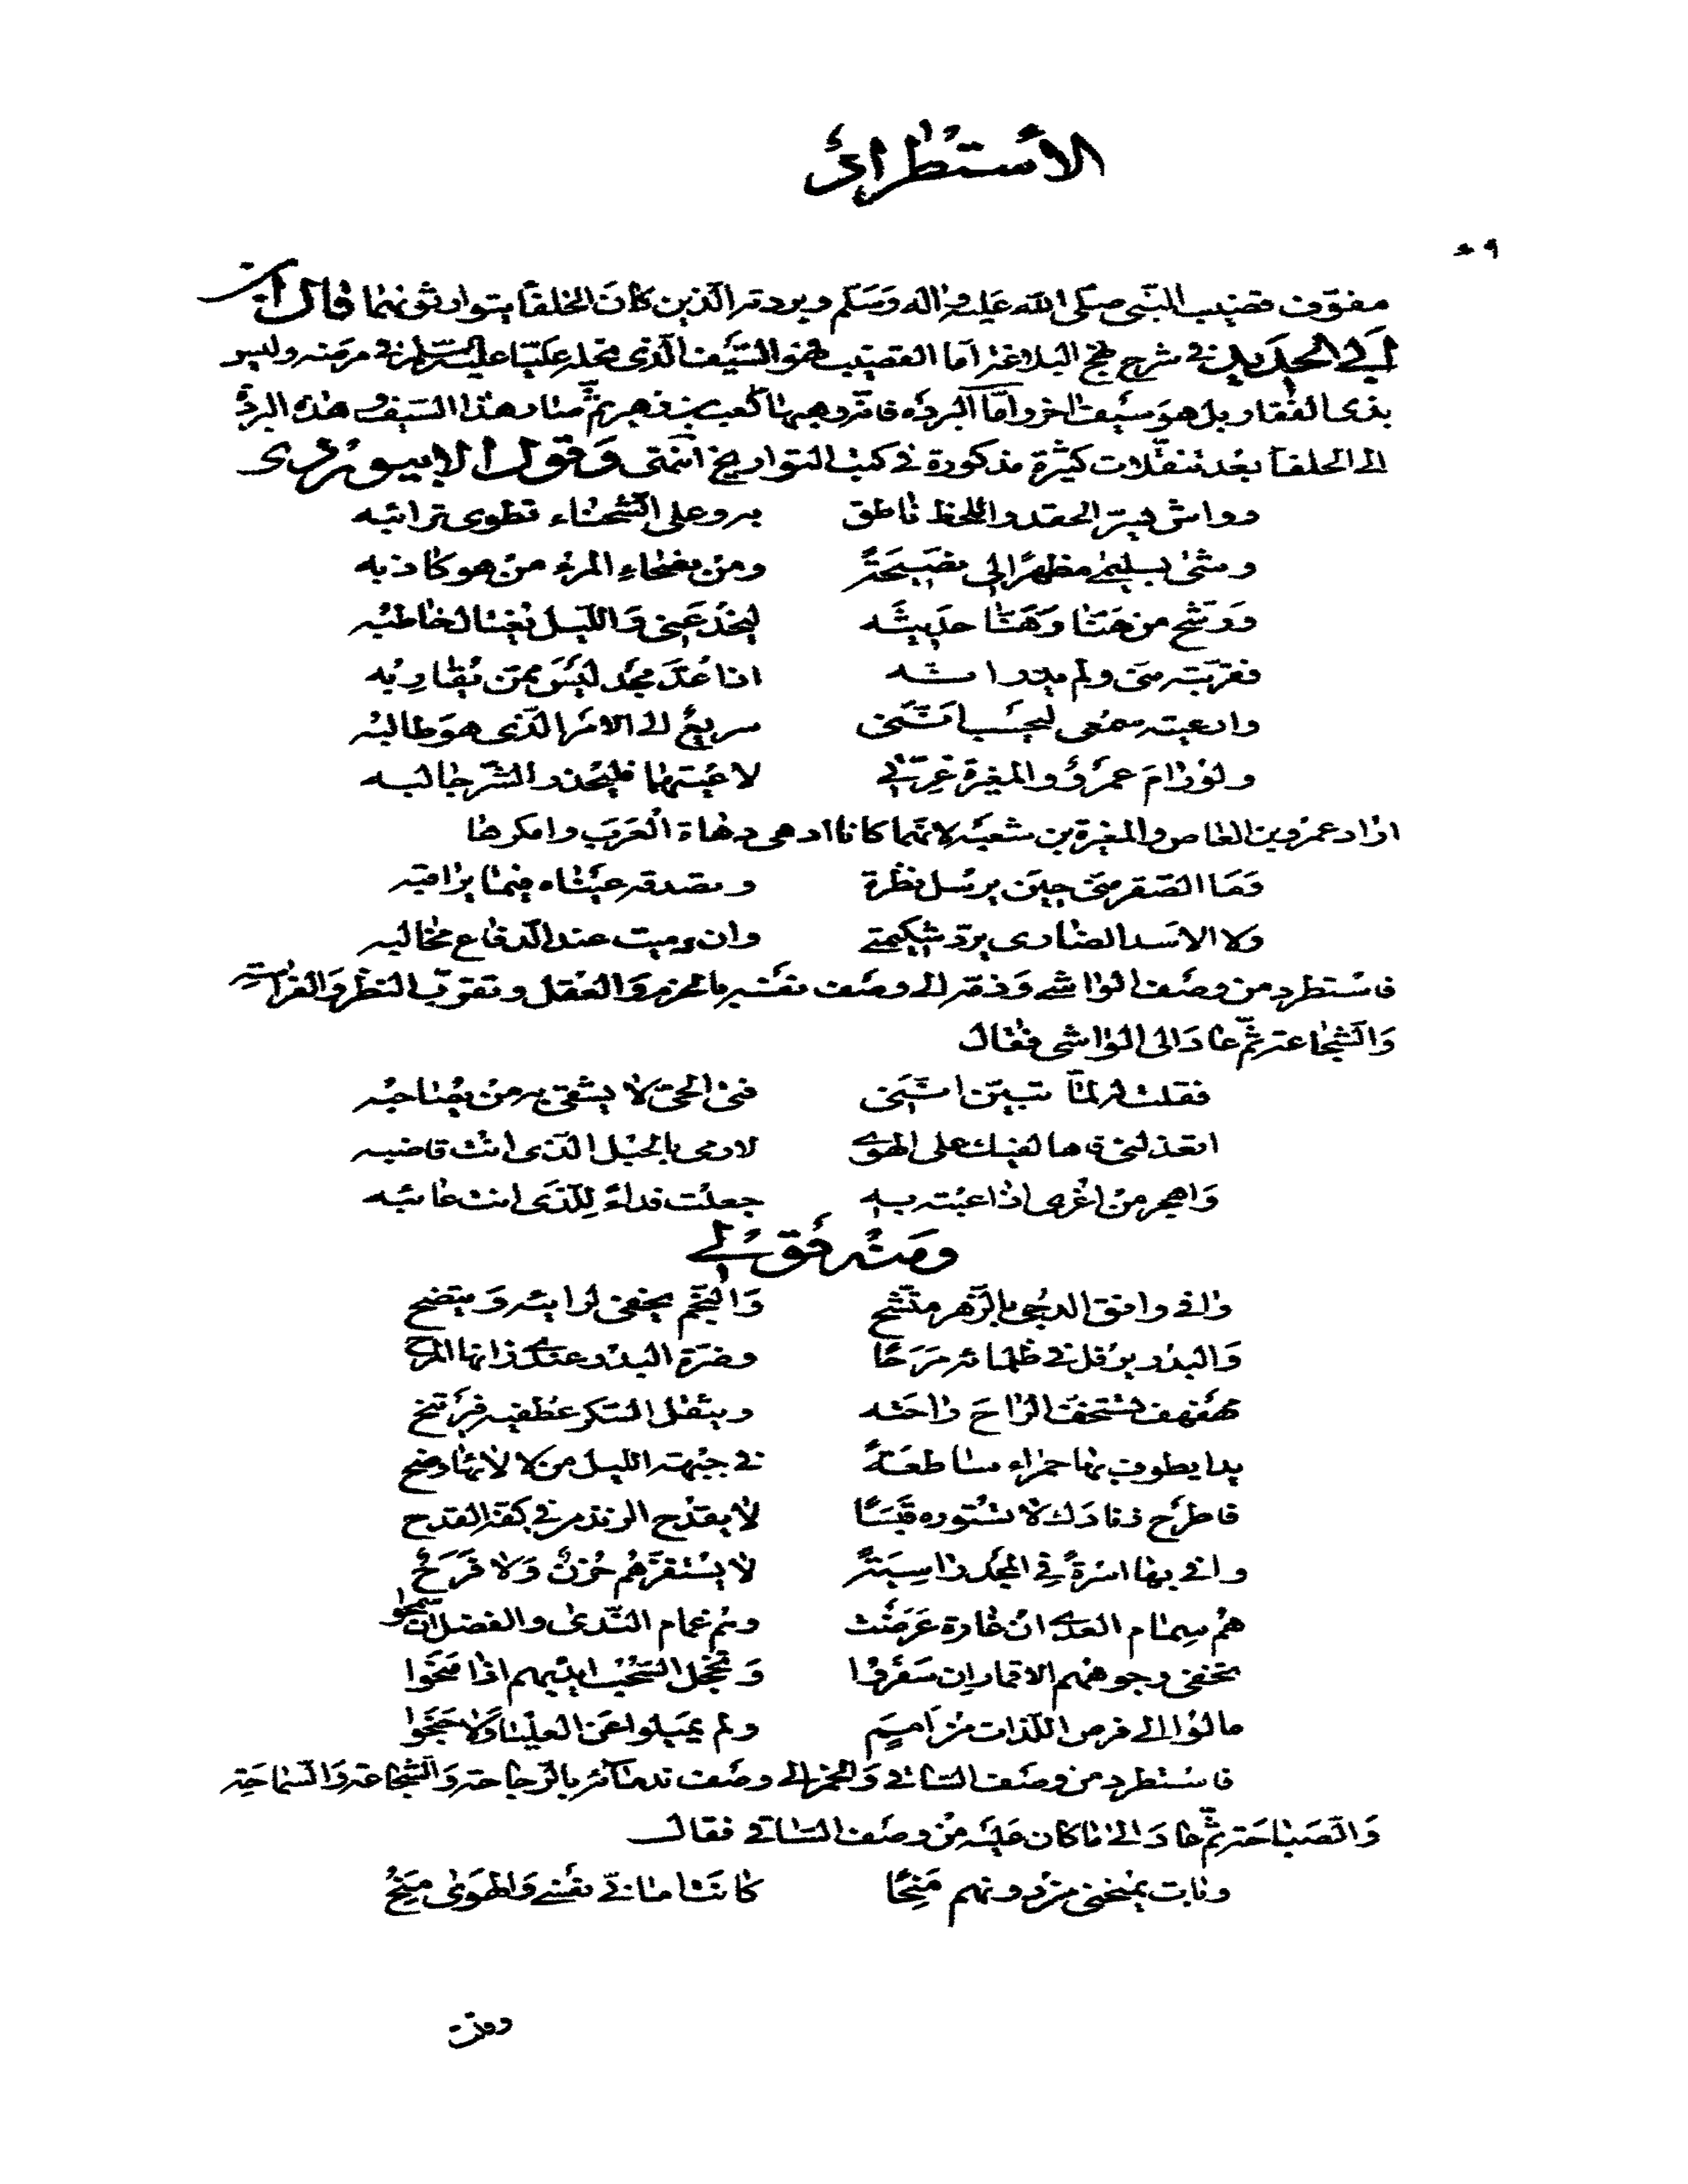 الاستطراد
٩٠
مفوّف قضيب النبى صلى الله عليه واله وسلم وبردته الذين كان الخلفا يتوارثونهما قال ابن
ابي الحديد في شرح نهج البلاغة اما القضيب فهو السيف الذى نحله عليّا عليه السلم في مرضه وليس
بذى الفقار بل هو سيف اخر واما البردة فانه وهبها كعب بن زهير ثم صار هذا السيف وهذه البردة
الى الخلفا بعد تنقلات كثيرة مذكورة في كتب التواريخ انتهى وقول الابيوردى
وواش يسرّ الحقد واللحظ ناطق به وعلى الشحناء تطوى ترائبه
وشى بسليمى مظهرا لي نصيحة ومن نصحاء المرء من هو كاذبه
ووشّح من هنّا وهنّا حديثه ليخدعنى والليل يغتال خاطبه
فقربته منى ولم يدر انه اذا عدّ مجد ليس ممن يقاربه
وارعيته سمعى ليحسب انّنى سريع الى الامر الذى هو طالبه
ولو رام عمرو والمغيرة غرتي لاعيتهما فليحذر الشرّ جالبه
اراد عمرو بن العاص والمغيرة بن شعبه لانهما كانا ادهى دهاة العرب وامكرها
فما الصقر منى حين يرسل نظرة وتصدقه عيناه فيما يراقبه
ولا الاسد الضارى يردّ شكيمتي وان دميت عند الدفاع مخالبه
فاستطرد من وصف الواشي وذمه الى وصف نفسه بالحزم والعقل وتقوّب النظر والفراسة
والشجاعة ثم عاد الى الواشى فقال
فقلت له لما تبيّن انّنى فتى الحى لا يشقى به من يصاحبه
اتعذلنى فى ها لفيك على الهوى لارمى بالحبل الذى انت قاضبه
واهجر من اغرى اذا عبته به جعلت فداء للذى انت عائبه
ومنه قولي
وافى وافق الدجى بالزهر متّشح والنجم يخفى لرائيه ويتضح
والبدر يرفل في ظلمائه مرحا وضرة البدر عندى زانها المرح
مهفهف تستخفّ الراح راحته ويثقل السكر عطفيه فيرتنح
بدا يطوف بها حمراء ساطعة في جبهة الليل من لالائها وضح
فاطرح زنادك لا تستوره قبسا لا يقدح الزند من في كفه القدح
وافى بها اسرة في المجد راسية لا يستفزهم حزن ولا فرح
هم سهام العدى ان غارة عرضت وهم غمام الندى والفضل ان سمحوا
تخفى وجوههم الاقمار ان سفروا وتخجل السحب ايديهم اذا منحوا
مالوا الى فرص اللذات من امم ولم يميلوا عن العليا ولا جنحوا
فاستطرد من وصف الساقي والخمر الى وصف ندمائه بالرجاحة والشجاعة والسماحة
والصباحة ثم عاد الى ما كان عليه من وصف الساقي فقال
وبات يمنحنى من دونهم منحا كانت امانيّ نفسي والهوى منح
ومن